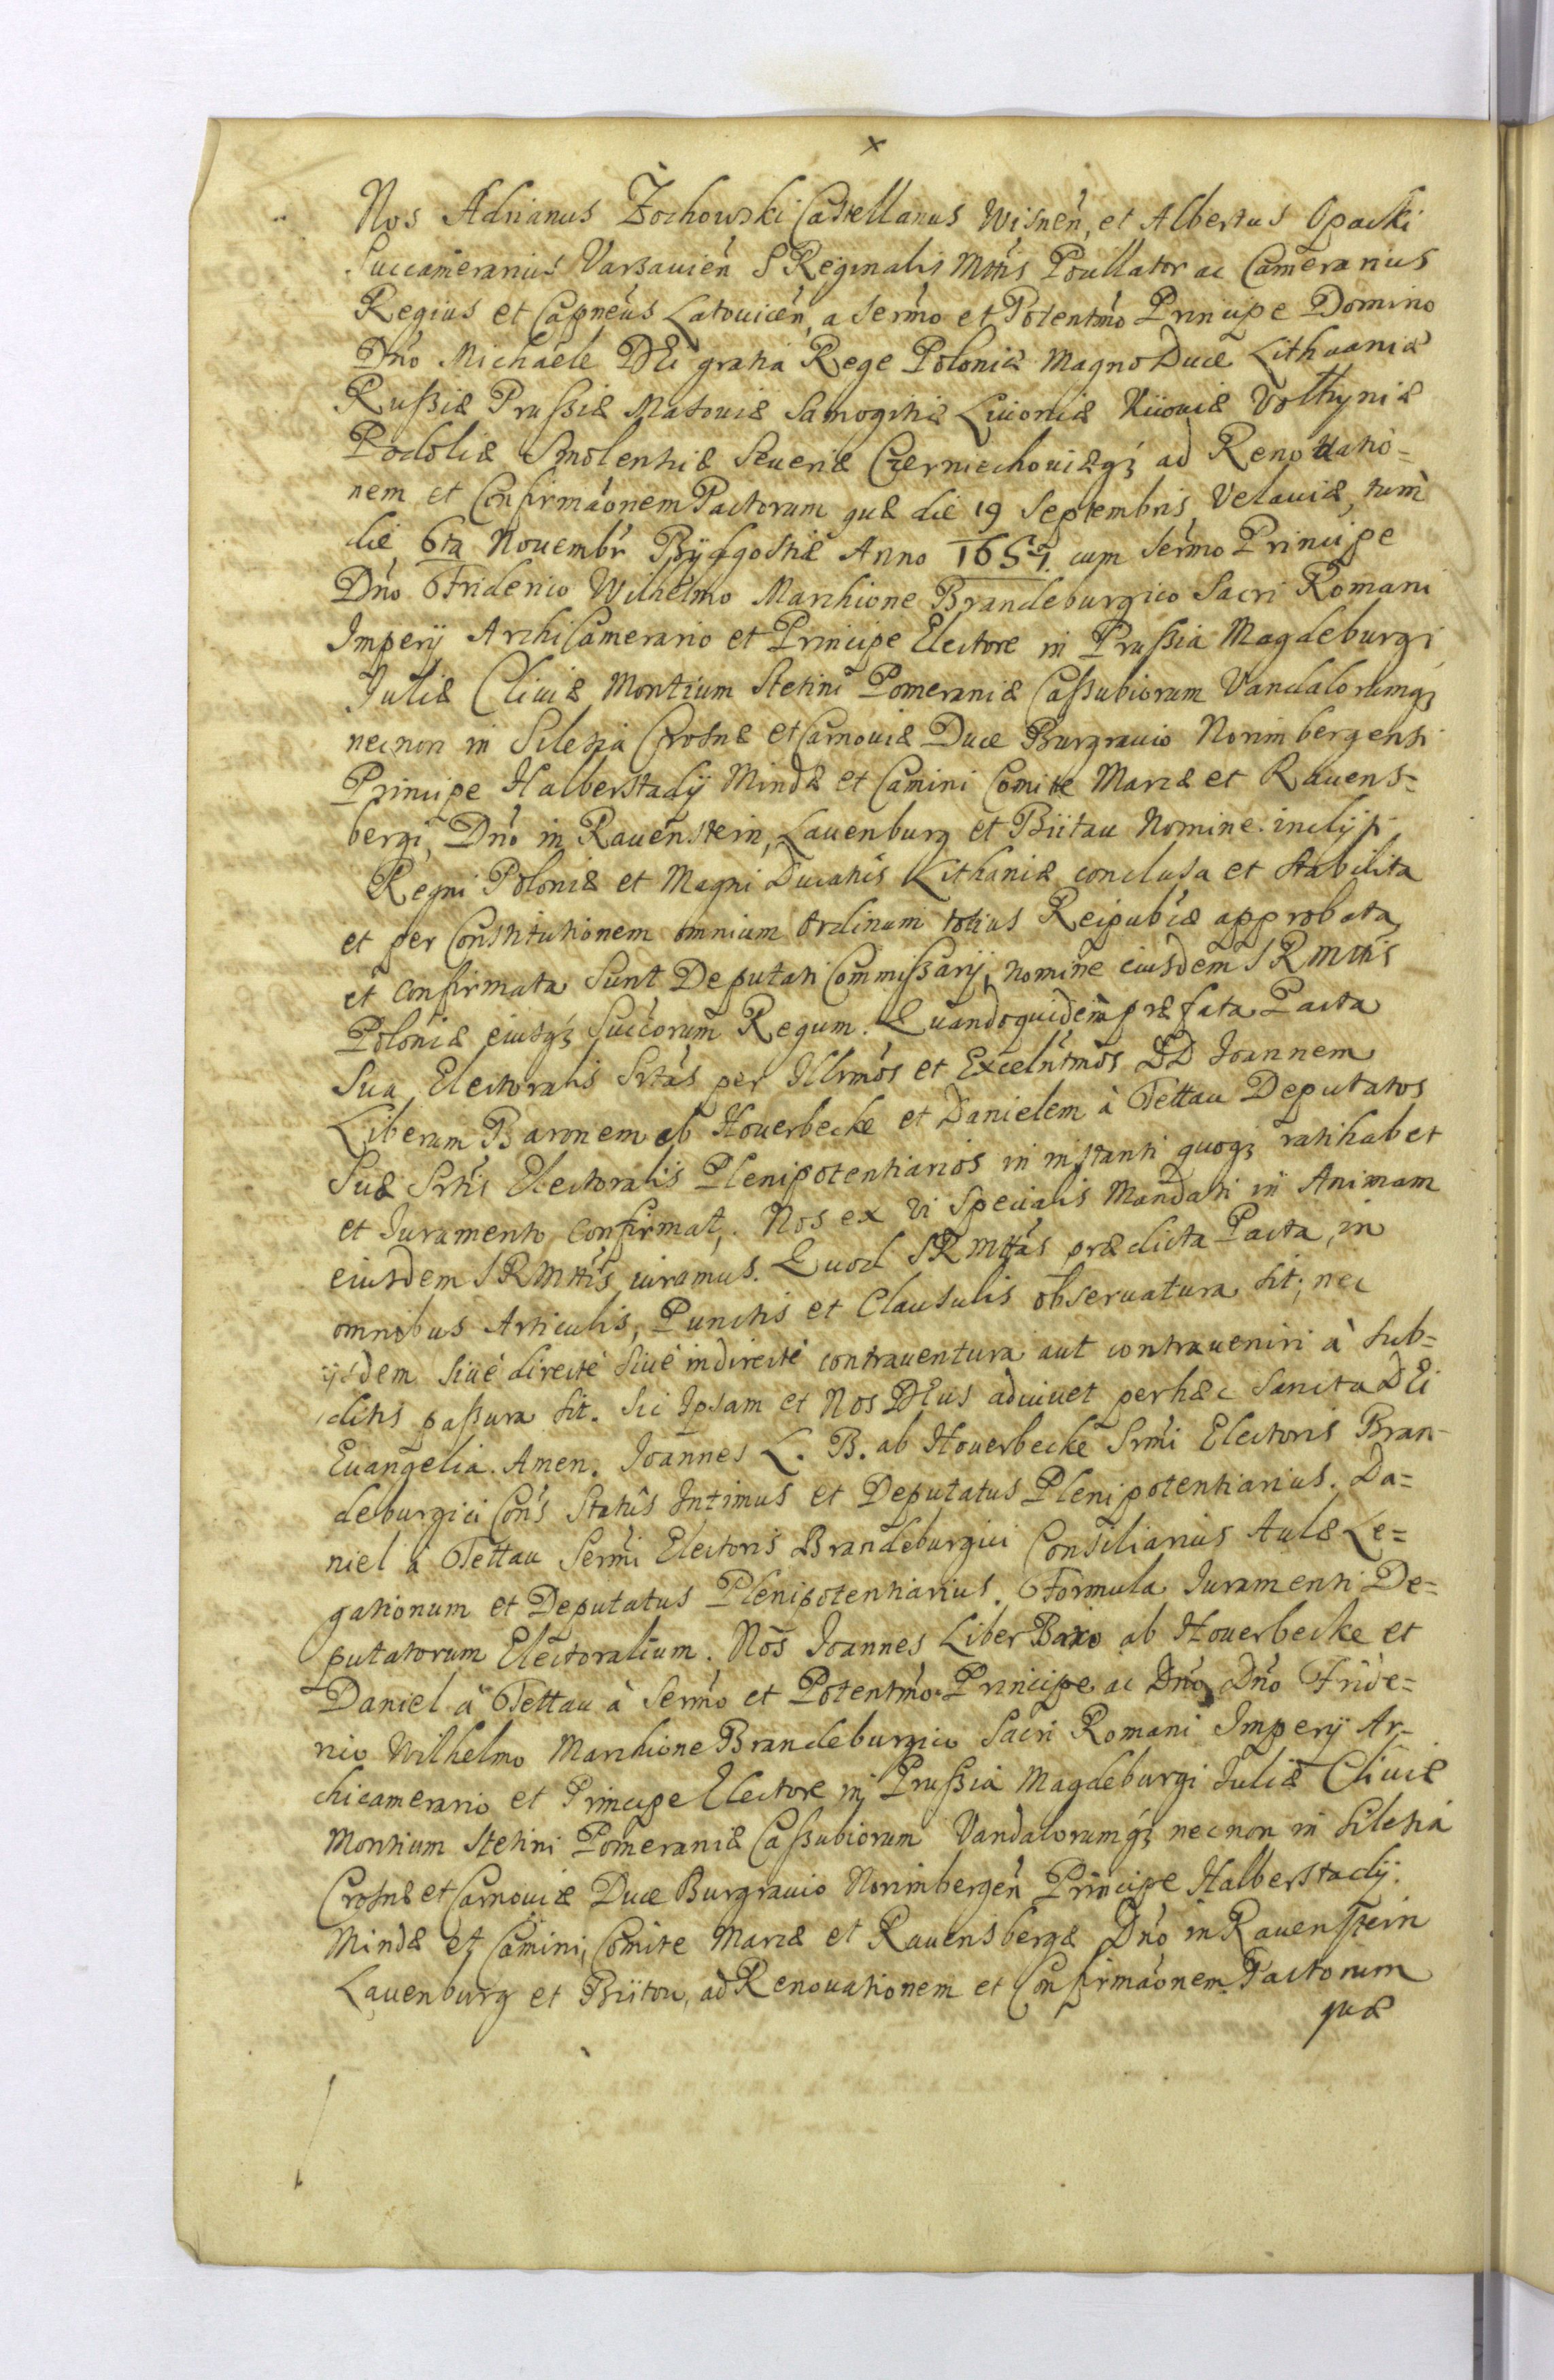 x
Nos Adrianus Żochowski Castellanus Wisnen̄, et Albertus Opacki
Succamerarius Varsauien̄ S Reginalis Mttis Pocillator ac Camerarius
Regius et Capneus Latouicen̄, a sermo et Potentmo Principe Domino
Dno Michaele DEi gratia Rege Poloniæ Magno Duce Lithuaniæ
Rußiæ Prußiæ Masouiæ Samogitiæ Liuoniæ Kiiouiæ Volhyniæ
Podoliæ Smolensiæ Seueriæ Czerniechouiæqꝫ ad Renouatio=
nem et Confirmaonem Pactorum quæ die 19 Septembris Velauiæ, tum
die 6ta Nouembr Bydgostiæ Anno 1657. cum sermo Principe
Dno Friderico Wilhelmo Marchione Brandeburgico Sacri Romani
Imperij ArchiCamerario et Principe Electore in Prußia Magdeburgi
Juliæ Cliuiæ Montium Stetini Pomeraniæ Caßubiorum Vandalorumqꝫ
necnon in Silesia Crosnæ et Carnouiæ Duce Burgrauio Norimbergensi
Principe Halberstadij Mindæ et Camini Comite Marcæ et Rauens=
bergi, Dno in Rauenstein, Lauenburg et Biitau Nomine inclyti
Regni Poloniæ et Magni Ducatûs Lithaniæ conclusa et stabilita
et per Constitutionem omnium Ordinum totius Reipubcæ approbata
et confirmata Sunt Deputati Commißarij, nomine eiusdem S R Mttis
Poloniæ eiusqꝫ Succorum Regum. Quandoquidem præfata Pacta
Sua Electoralis Srtas per Illrmos et Excelntmos DD Joannem
Liberum Baronem ab Houerbecke et Danielem à Tettau Deputatos
Suæ Srtis Electoralis Plenipotentiarios in instanti quoqꝫ ratihabet
et Iuramento confirmat,. Nos ex vi specialis Mandati in Animam
eiusdem S R Mttis iuramus. Quod S R Mttas prædicta Pacta, in
omnibus Articulis, Punctis et Clausulis obseruatura sit; nec
ijsdem siue directè siue indirectè contrauentura aut contraueniri à sub=
ditis paßura sit. Sic Ipsam et Nos DEus adiuuet per hæc Sancta DEi
Euangelia. Amen. Joannes L. B. ab Houerbecke Srmi Electoris Bran-
deburgici Cons Statûs Intimus et Deputatus Plenipotentiarius. Da=
niel à Tettau Sermi Electoris Brandeburgici Consiliarius Aulæ Le=
gationum et Deputatus Plenipotentiarius. Formula Iuramenti De=
putatorum Electoralium. Nos Joannes Liber Baro ab Houerbecke et
Daniel à Tettau à Sermo et Potentmo Principe ac Dno, Dno Fride=
rico Wilhelmo Marchione Brandeburgico Sacri Romani Imperij Ar=
chicamerario et Principe Electore in Prußia Magdeburgi Juliæ Cliuiæ
Montium Stetini Pomeraniæ Caßubiorum Vandalorumqꝫ necnon in Silesia
Crosnæ et Carnouiæ Duce Burgrauio Norimbergen̄ Principe Halberstadij
Mindæ et Camini, Comite Marcæ et Rauensbergæ Dno in Rauenstein
Lauenburg et Biitou, ad Renouationem et Confirmaonem Pactorum
quæ